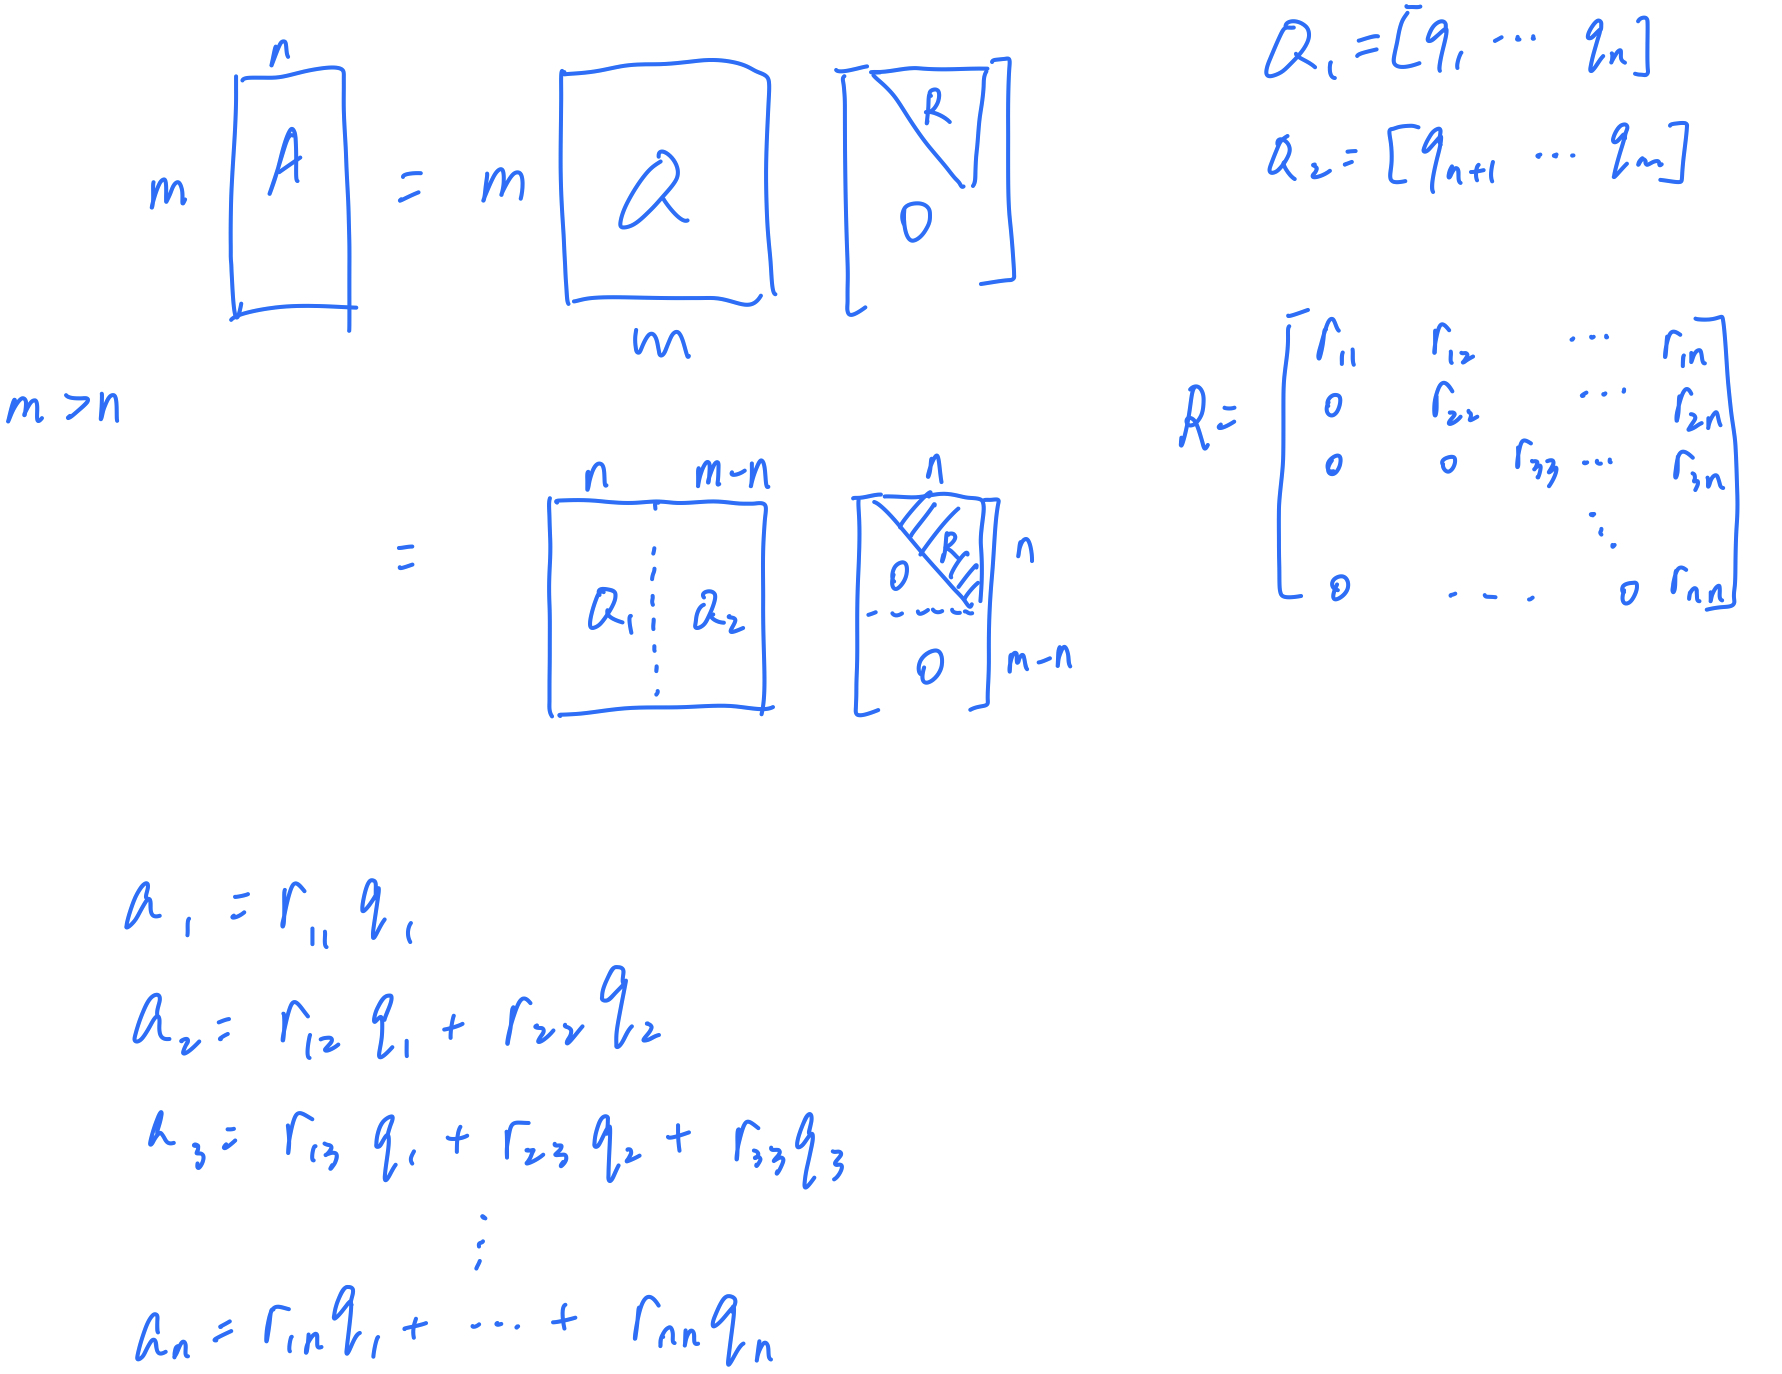 n
m A = m Q R
0
m
m > n
n m-n n
= Q₁ Q₂ 0 R n
0 m-n
Q₁ = [q₁ ⋯ qₙ]
Q₂ = [qₙ₊₁ ⋯ qₘ]
R = [r₁₁ r₁₂ ⋯ r₁ₙ
0 r₂₂ ⋯ r₂ₙ
0 0 r₃₃ ⋯ r₃ₙ
⋱
0 ⋯ 0 rₙₙ]
a₁ = r₁₁ q₁
a₂ = r₁₂ q₁ + r₂₂ q₂
a₃ = r₁₃ q₁ + r₂₃ q₂ + r₃₃ q₃
⋮
aₙ = r₁ₙ q₁ + ⋯ + rₙₙ qₙ